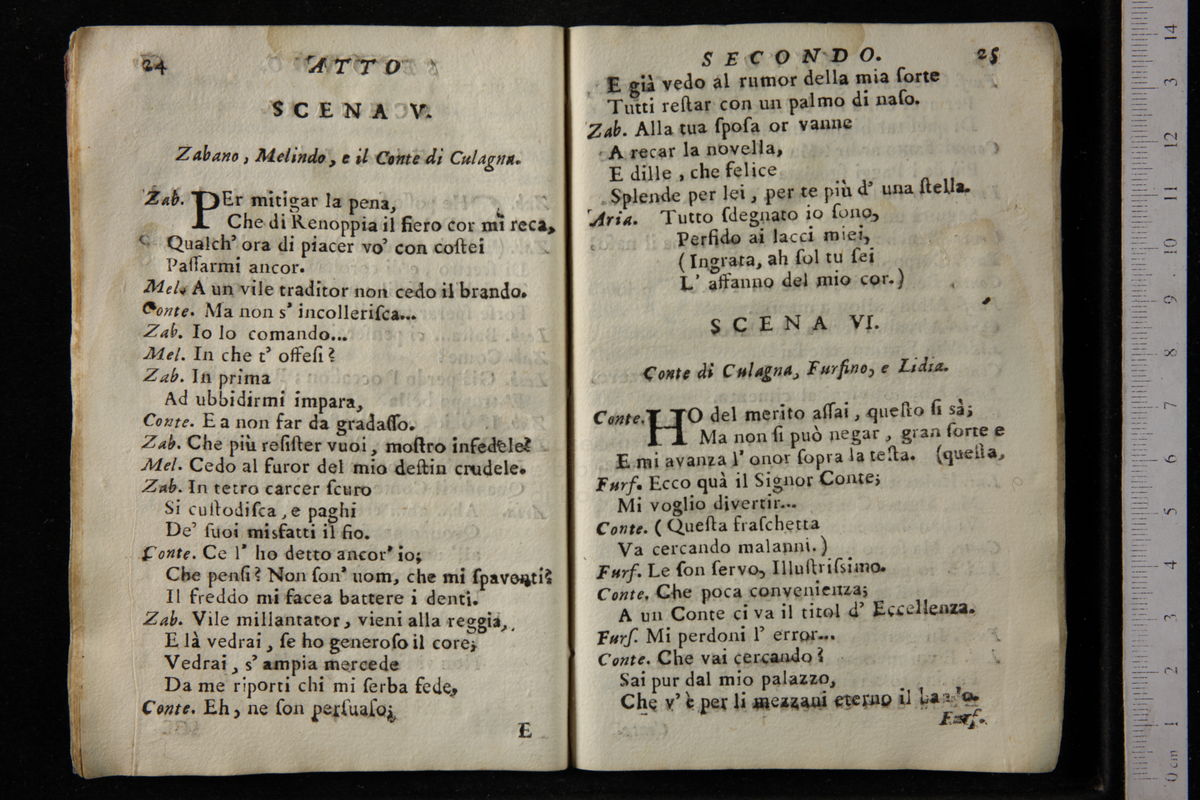 24 ATTO
SCENA V.
Zabano, Melindo, e il Conte di Culagna.
Zab. PEr mitigar la pena,
Che di Renoppia il fiero cor mi reca,
Qualch' ora di piacer vo' con coſtei
Paſſarmi ancor.
Mel. A un vile traditor non cedo il brando.
Conte. Ma non s' incolleriſca...
Zab. Io lo comando...
Mel. In che t' offeſi?
Zab. In prima
Ad ubbidirmi impara,
Conte. E a non far da gradaſſo.
Zab. Che più reſiſter vuoi, moſtro infedele?
Mel. Cedo al furor del mio deſtin crudele.
Zab. In tetro carcer ſcuro
Si cuſtodiſca, e paghi
De' ſuoi misfatti il fio.
Conte. Ce l' ho detto ancor' io;
Che penſi? Non ſon' uom, che mi ſpaventi?
Il freddo mi facea battere i denti.
Zab. Vile millantator, vieni alla reggia,
E là vedrai, ſe ho generoſo il core;
Vedrai, s' ampia mercede
Da me riporti chi mi ſerba fede,
Conte. Eh, ne ſon perſuaſo;
E
SECONDO. 25
E già vedo al rumor della mia ſorte
Tutti reſtar con un palmo di naſo.
Zab. Alla tua ſpoſa or vanne
A recar la novella,
E dille, che felice
Splende per lei, per te più d' una ſtella.
Aria. Tutto ſdegnato io ſono,
Perfido ai lacci miei,
(Ingrata, ah ſol tu ſei
L' affanno del mio cor.)
SCENA VI.
Conte di Culagna, Furfino, e Lidia.
Conte. HO del merito aſſai, queſto ſi sà;
Ma non ſi può negar, gran ſorte e
E mi avanza l' onor ſopra la teſta. (queſta,
Furf. Ecco quà il Signor Conte;
Mi voglio divertir...
Conte. (Queſta fraſchetta
Va cercando malanni.)
Furf. Le ſon ſervo, Illuſtriſsimo.
Conte. Che poca convenienza;
A un Conte ci va il titol d' Eccellenza.
Furf. Mi perdoni l' error...
Conte. Che vai cercando?
Sai pur dal mio palazzo,
Che v' è per li mezzani eterno il bando.
Furf.